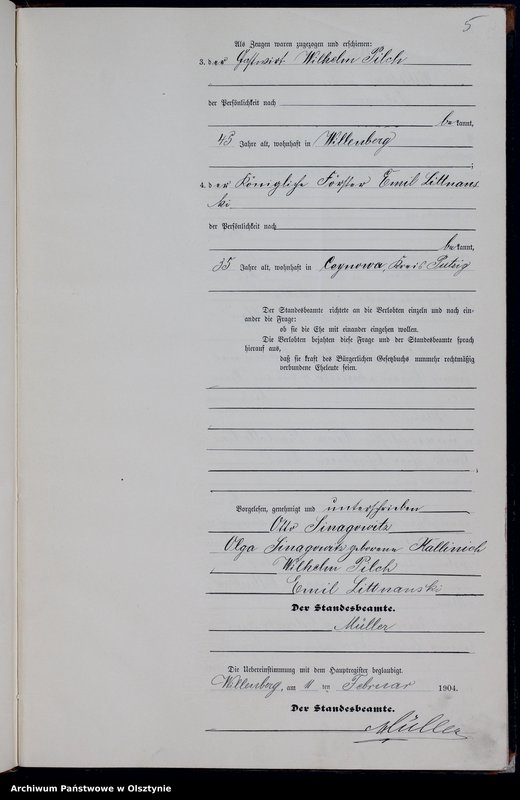 5
Als Zeugen waren zugezogen und erschienen:
3. der Gastwirt Wilhelm Pilch
der Persönlichkeit nach
be kannt,
45 Jahre alt, wohnhaft in Willenberg
;
4. der Königliche Förster Emil Littnans
ki
der Persönlichkeit nach
be kannt,
35 Jahre alt, wohnhaft in Ceynowa, Kreis Putzig
Der Standesbeamte richtete an die Verlobten einzeln und nach ein-
ander die Frage:
ob sie die Ehe mit einander eingehen wollen.
Die Verlobten bejahten diese Frage und der Standesbeamte sprach
hierauf aus,
daß sie kraft des Bürgerlichen Gesetzbuchs nunmehr rechtmäßig
verbundene Eheleute seien.
Vorgelesen, genehmigt und unterschrieben
Otto Sinagowitz
Olga Sinagowitz geborene Kallinich
Wilhelm Pilch
Emil Littnanski
Der Standesbeamte.
Müller
Die Uebereinstimmung mit dem Hauptregister beglaubigt.
Willenberg, am 11 ten Februar 1904.
Der Standesbeamte.
Müller
Archiwum Państwowe w Olsztynie